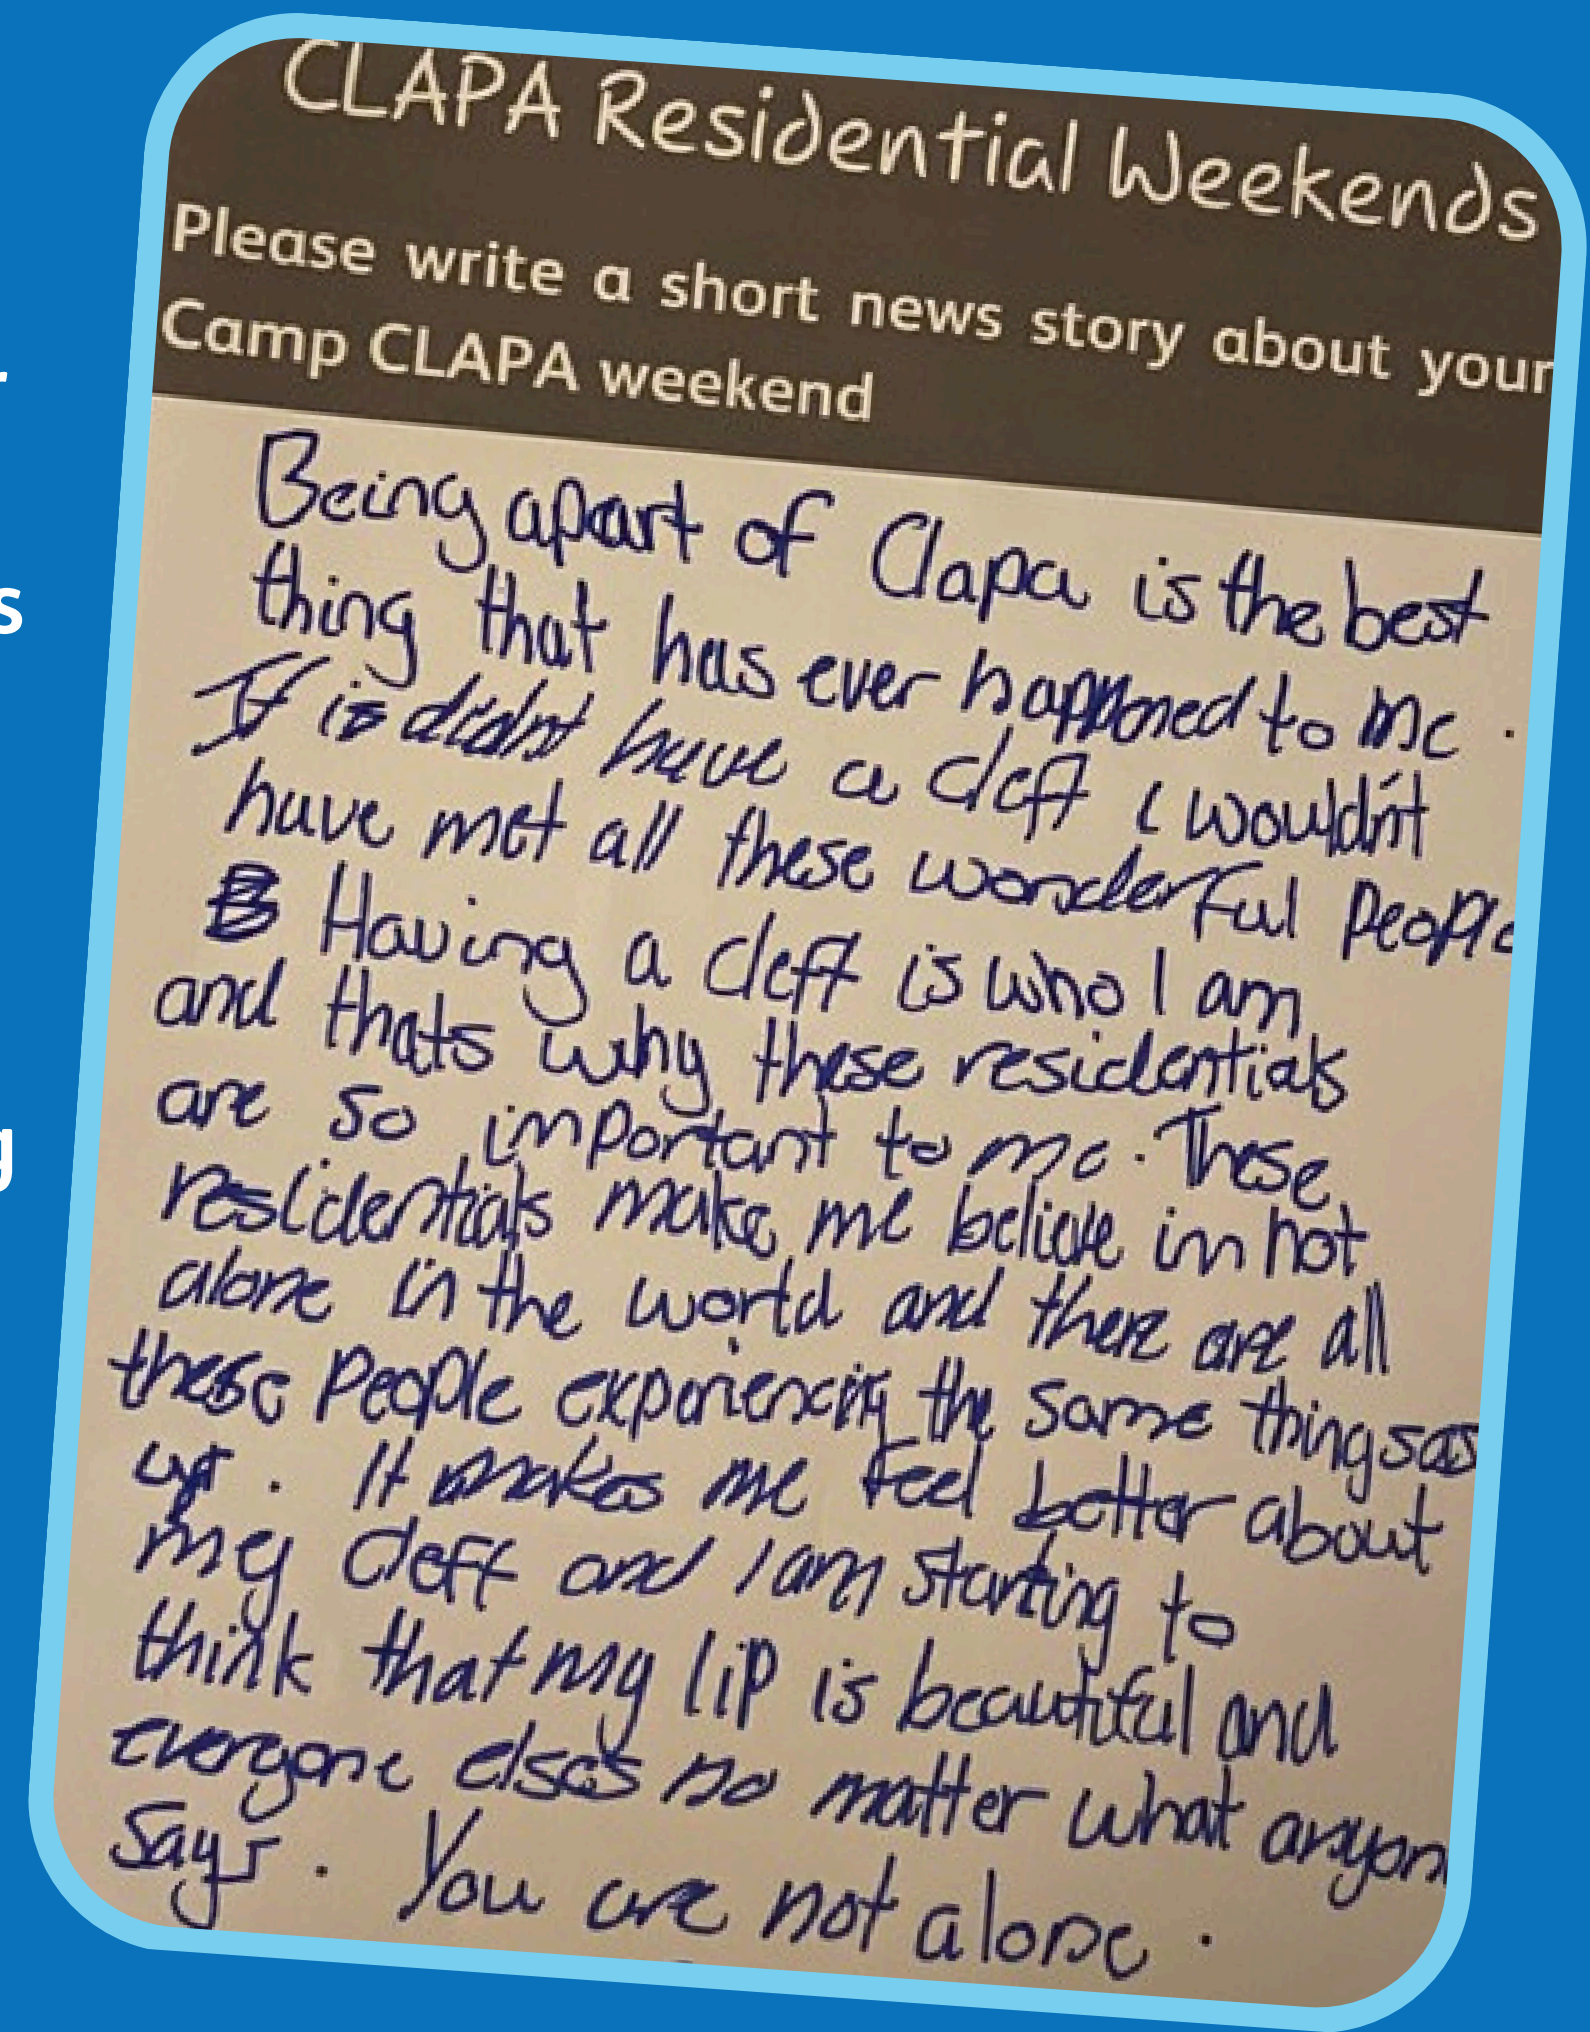 CLAPA Residential Weekends
Please write a short news story about your
Camp CLAPA weekend
Being apart of Clapa is the best
thing that has ever happened to me.
If i didnt have a cleft i wouldn't
have met all these wonderful people
Having a cleft is who I am
and thats why these residentials
are so important to me. These
residentials make me believe im not
alone in the world and there are all
these people experiencing the same things as
us. It makes me feel better about
my cleft and I am starting to
think that my lip is beautiful and
everyone elses no matter what anyon
says. You are not alone.